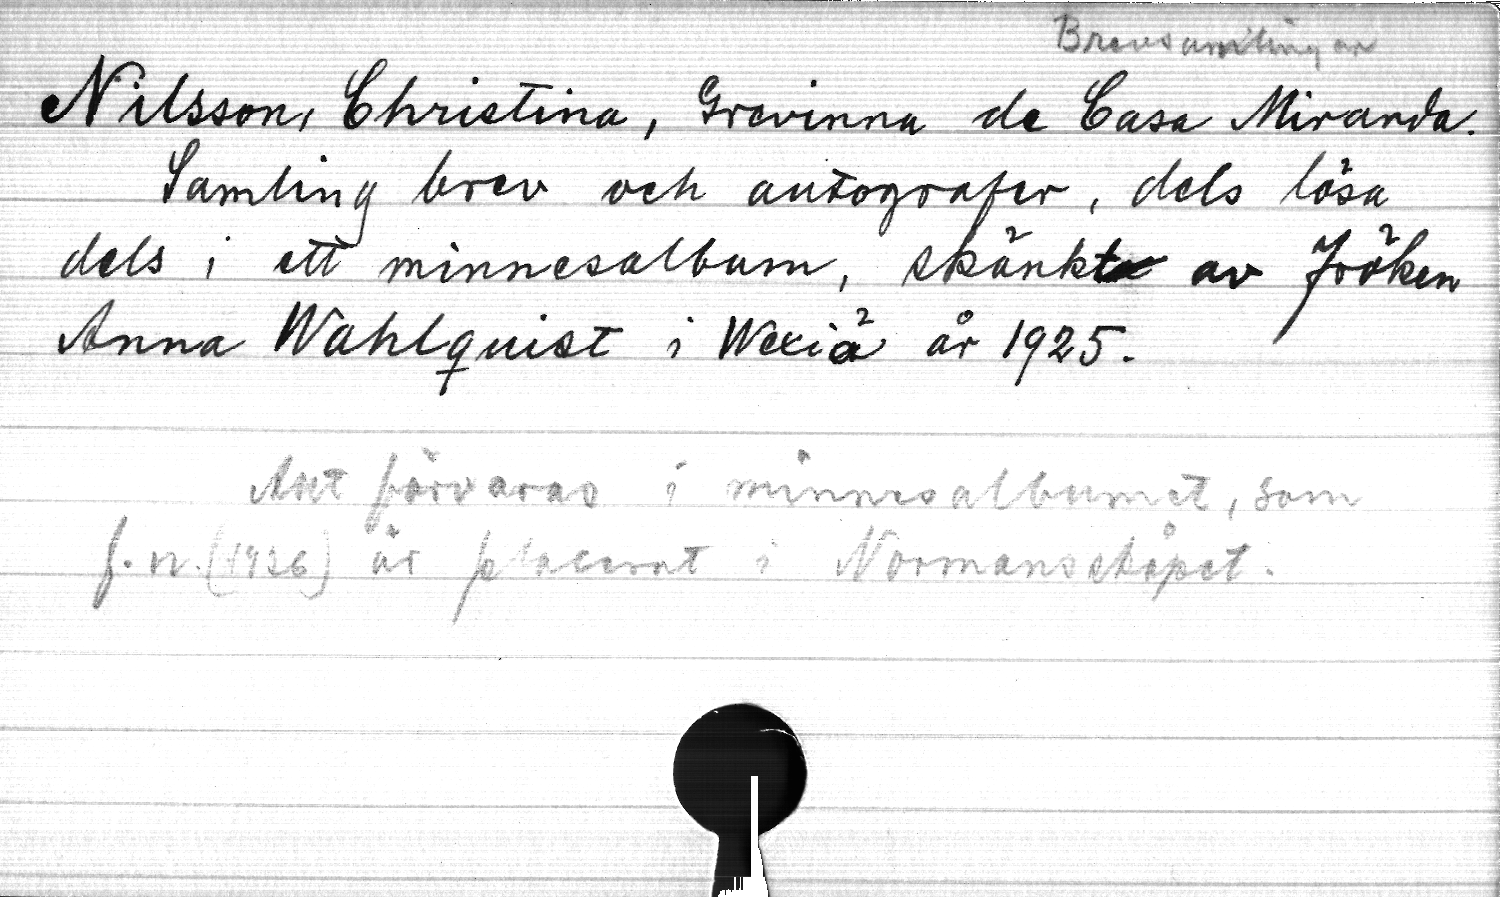 Brevsamlingar
Nilsson, Christina, Grevinna de Casa Miranda.
Samling brev och autografer, dels lösa
dels i ett minnesalbum, skänkta av Fröken
Anna Wahlquist i Wexiö år 1925.
Allt förvaras i minnesalbumet, som
f. n. (1926) är placerat i Normansskåpet.